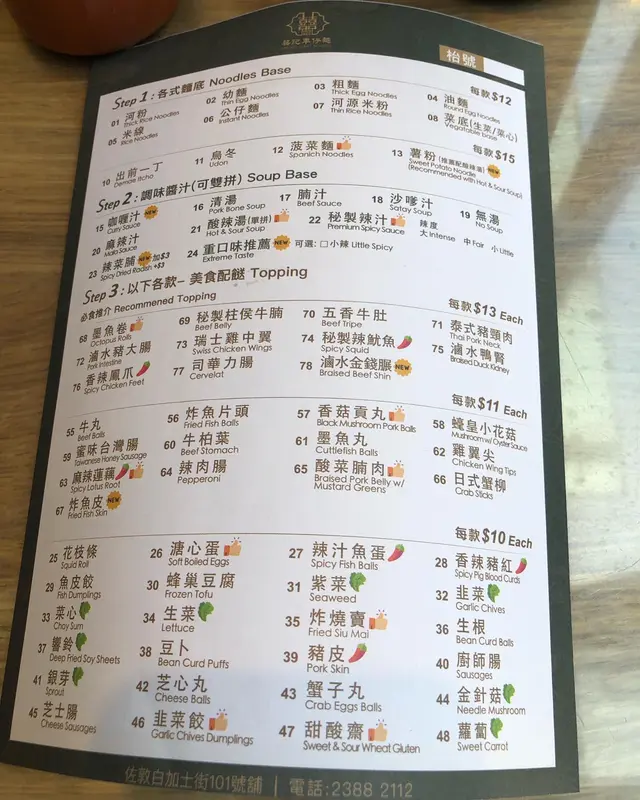 囍記車仔麵
枱號
Step 1 : 各式麵底 Noodles Base
每款$12
01 河粉 Thick Rice Noodles
02 幼麵 Thin Egg Noodles
03 粗麵 Thick Egg Noodles
04 油麵 Round Egg Noodles
05 米線 Rice Noodles
06 公仔麵 Instant Noodles
07 河源米粉 Thin Rice Noodles
08 菜底(生菜/菜心) Vegetable base
每款$15
10 出前一丁 Demae Itcho
11 烏冬 Udon
12 菠菜麵 Spanich Noodles
13 薯粉 (推薦配酸辣湯) NEW Sweet Potato Noodle (Recommended with Hot & Sour Soup)
Step 2 : 調味醬汁(可雙拼) Soup Base
15 咖喱汁 NEW Curry Sauce
16 清湯 Pork Bone Soup
17 腩汁 Beef Sauce
18 沙嗲汁 Satay Soup
19 無湯 No Soup
20 麻辣汁 Mala Sauce
21 酸辣湯(單拼) Hot & Sour Soup
22 秘製辣汁 Premium Spicy Sauce
辣度 大 Intense 中 Fair 小 Little
23 辣菜脯 NEW 加$3 Spicy Dried Radish +$3
24 重口味推薦 NEW Extreme Taste
可選: □ 小辣 Little Spicy
Step 3 : 以下各款– 美食配餸 Topping
必食推介 Recommened Topping
每款$13 Each
68 墨魚卷 Octopus Rolls
69 秘製柱侯牛腩 Beef Belly
70 五香牛肚 Beef Tripe
71 泰式豬頸肉 Thai Pork Neck
72 滷水豬大腸 Pork Intestine
73 瑞士雞中翼 Swiss Chicken Wings
74 秘製辣魷魚 Spicy Squid
75 滷水鴨腎 Braised Duck Kidney
76 香辣鳳爪 Spicy Chicken Feet
77 司華力腸 Cervelat
78 滷水金錢𦟌 NEW Braised Beef Shin
每款$11 Each
55 牛丸 Beef Balls
56 炸魚片頭 Fried Fish Balls
57 香菇貢丸 Black Mushroom Pork Balls
58 蠔皇小花菇 Mushroom w/ Oyster Sauce
59 蜜味台灣腸 Taiwanese Honey Sausage
60 牛柏葉 Beef Stomach
61 墨魚丸 Cuttlefish Balls
62 雞翼尖 Chicken Wing Tips
63 麻辣蓮藕 Spicy Lotus Root
64 辣肉腸 Pepperoni
65 酸菜腩肉 Braised Pork Belly w/ Mustard Greens
66 日式蟹柳 Crab Sticks
67 炸魚皮 NEW Fried Fish Skin
每款$10 Each
25 花枝條 Squid Roll
26 溏心蛋 Soft Boiled Eggs
27 辣汁魚蛋 Spicy Fish Balls
28 香辣豬紅 Spicy Pig Blood Curds
29 魚皮餃 Fish Dumplings
30 蜂巢豆腐 Frozen Tofu
31 紫菜 Seaweed
32 韭菜 Garlic Chives
33 菜心 Choy Sum
34 生菜 Lettuce
35 炸燒賣 Fried Siu Mai
36 生根 Bean Curd Balls
37 響鈴 Deep Fried Soy Sheets
38 豆卜 Bean Curd Puffs
39 豬皮 Pork Skin
40 廚師腸 Sausages
41 銀芽 Sprout
42 芝心丸 Cheese Balls
43 蟹子丸 Crab Eggs Balls
44 金針菇 Needle Mushroom
45 芝士腸 Cheese Sausages
46 韭菜餃 Garlic Chives Dumplings
47 甜酸齋 Sweet & Sour Wheat Gluten
48 蘿蔔 Sweet Carrot
佐敦白加士街101號舖 | 電話:2388 2112